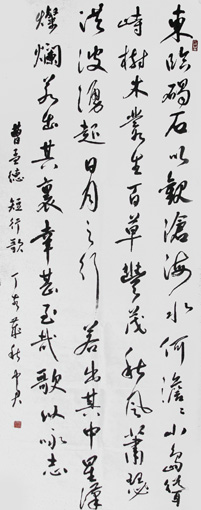 東臨碣石以觀滄海水何澹〻山島聳
峙樹木叢生百草豐茂秋風蕭瑟
洪波湧起日月之行若出其中星漢
燦爛若出其裏幸甚至哉歌以咏志
曹孟德短行歌丁亥